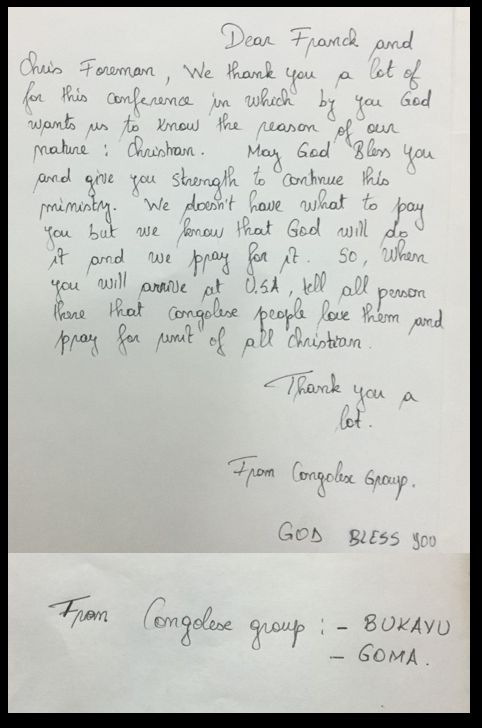 Dear Franck and
Chris Foreman, We thank you a lot of
for this conference in which by you God
wants us to know the reason of our
nature : Christian. May God Bless you
and give you strength to continue this
ministry. We doesn't have what to pay
you but we know that God will do
it and we pray for it. So, when
you will arrive at U.S.A, tell all person
there that congolese people love them and
pray for unit of all christian.
Thank you a
lot.
From Congolese Group.
GOD BLESS YOU
From Congolese group : - BUKAVU
- GOMA.